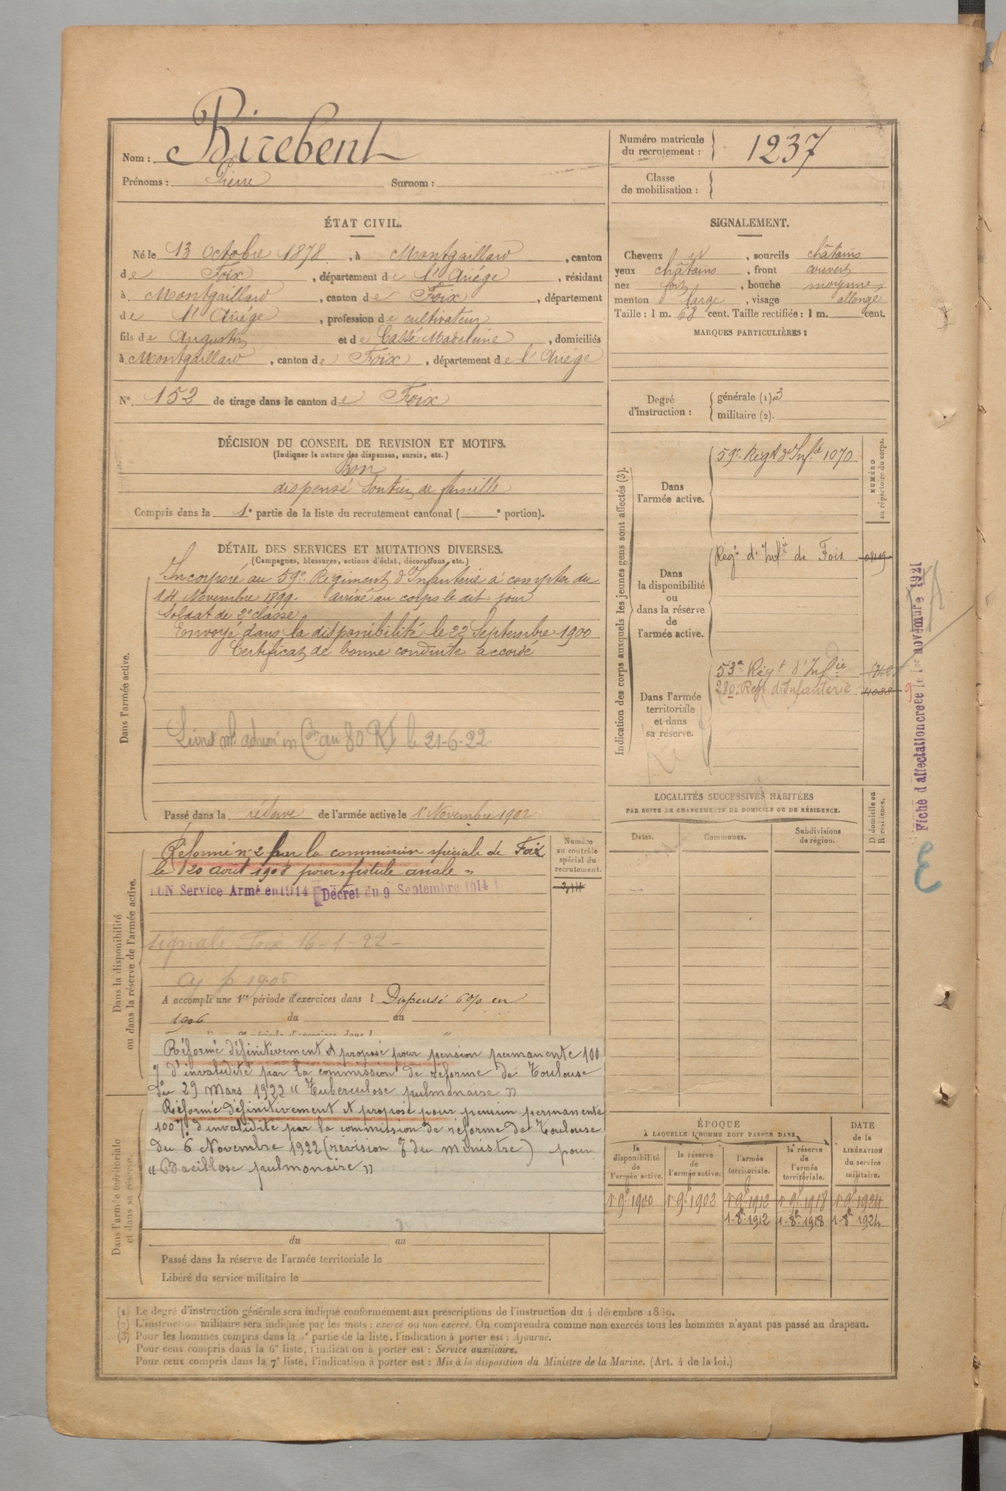 Nom : Birebent
Prénoms : Pierre Surnom :
Numéro matricule du recrutement : 1237
Classe de mobilisation :
ÉTAT CIVIL.
Né le 13 Octobre 1878, à Montgaillard, canton
de Foix, département de l'Ariège, résidant
à Montgaillard, canton de Foix, département
de l'Ariège, profession de cultivateur
fils de Augustin et de Madeleine, domiciliés
à Montgaillard, canton de Foix, département de l'Ariège
N° 152 de tirage dans le canton de Foix
SIGNALEMENT.
Cheveux et, sourcils châtains
yeux châtains, front couvert
nez fort, bouche moyenne
menton large, visage allongé
Taille : 1 m. 68 cent. Taille rectifiée : 1 m. cent.
MARQUES PARTICULIÈRES :
Degré d'instruction : générale (1) 3
militaire (2).
DÉCISION DU CONSEIL DE REVISION ET MOTIFS.
(Indiquer la nature des dispenses, sursis, etc.)
Bon
dispensé soutien de famille
Compris dans la 1e partie de la liste du recrutement cantonal ( e portion).
DÉTAIL DES SERVICES ET MUTATIONS DIVERSES.
(Campagnes, blessures, actions d'éclat, décorations, etc.)
Dans l'armée active.
Incorporé au 59e Régiment d'Infanterie à compter du
14 Novembre 1899. arrivé au corps le dit jour
Soldat de 2e classe
Envoyé dans la disponibilité le 22 Septembre 1900
Certificat de bonne conduite accordé
le 21-6-22
Passé dans la réserve de l'armée active le 1er Novembre 1902
Indication des corps auxquels les jeunes gens sont affectés (3).
NUMÉRO au répertoire du corps.
Dans l'armée active.
59e Regt d'Infie 1070
Dans la disponibilité ou dans la réserve de l'armée active.
Regt d'Infie de Foix
Dans l'armée territoriale et dans sa réserve.
53e Régt d'Infie
280e Regt d'Infanterie
Fiche d'affectation créée le 1er novembre 1921
LOCALITÉS SUCCESSIVES HABITÉES
PAR SUITE DE CHANGEMENTS DE DOMICILE OU DE RÉSIDENCE.
Dates. Communes. Subdivisions de région. D domicile ou R résidence.
Dans la disponibilité ou dans la réserve de l'armée active.
Numéro au contrôle spécial du recrutement.
Réformé n° 2 par la commission spéciale de Foix
le 20 août 1908 pour "fistule anale"
BON Service Armé en 1914 Décret du 9 Septembre 1914
signalé Foix 16-1-22
A accompli une 1re période d'exercices dans l Dispensé 6% en
1906 du au
Réformé définitivement et proposé pour pension permanente 100
% d'invalidité par la commission de réforme de Toulouse
du 29 Mars 1922 "Tuberculose pulmonaire"
Réformé définitivement et proposé pour pension permanente
100% d'invalidité par la commission de réforme de Toulouse
du 6 Novembre 1922 (révision du ministre) pour
"Bacillose pulmonaire"
Dans l'armée territoriale et dans sa réserve.
du au
Passé dans la réserve de l'armée territoriale le
Libéré du service militaire le
ÉPOQUE
À LAQUELLE L'HOMME DOIT PASSER DANS
DATE de la LIBÉRATION du service militaire.
la disponibilité de l'armée active. la réserve de l'armée active. l'armée territoriale. la réserve de l'armée territoriale.
1 9bre 1900 1 9bre 1902 1 9bre 1912 1 9bre 1918 1 9bre 1924
1-8bre 1912 1-8bre 1918 1-8bre 1924
(1) Le degré d'instruction générale sera indiqué conformément aux prescriptions de l'instruction du 4 décembre 1889.
(2) L'instruction militaire sera indiquée par les mots : exercé ou non exercé. On comprendra comme non exercés tous les hommes n'ayant pas passé au drapeau.
(3) Pour les hommes compris dans la partie de la liste, l'indication à porter est : Ajourné.
Pour ceux compris dans la 6e liste, l'indication à porter est : Service auxiliaire.
Pour ceux compris dans la 7e liste, l'indication à porter est : Mis à la disposition du Ministre de la Marine. (Art. 4 de la loi.)